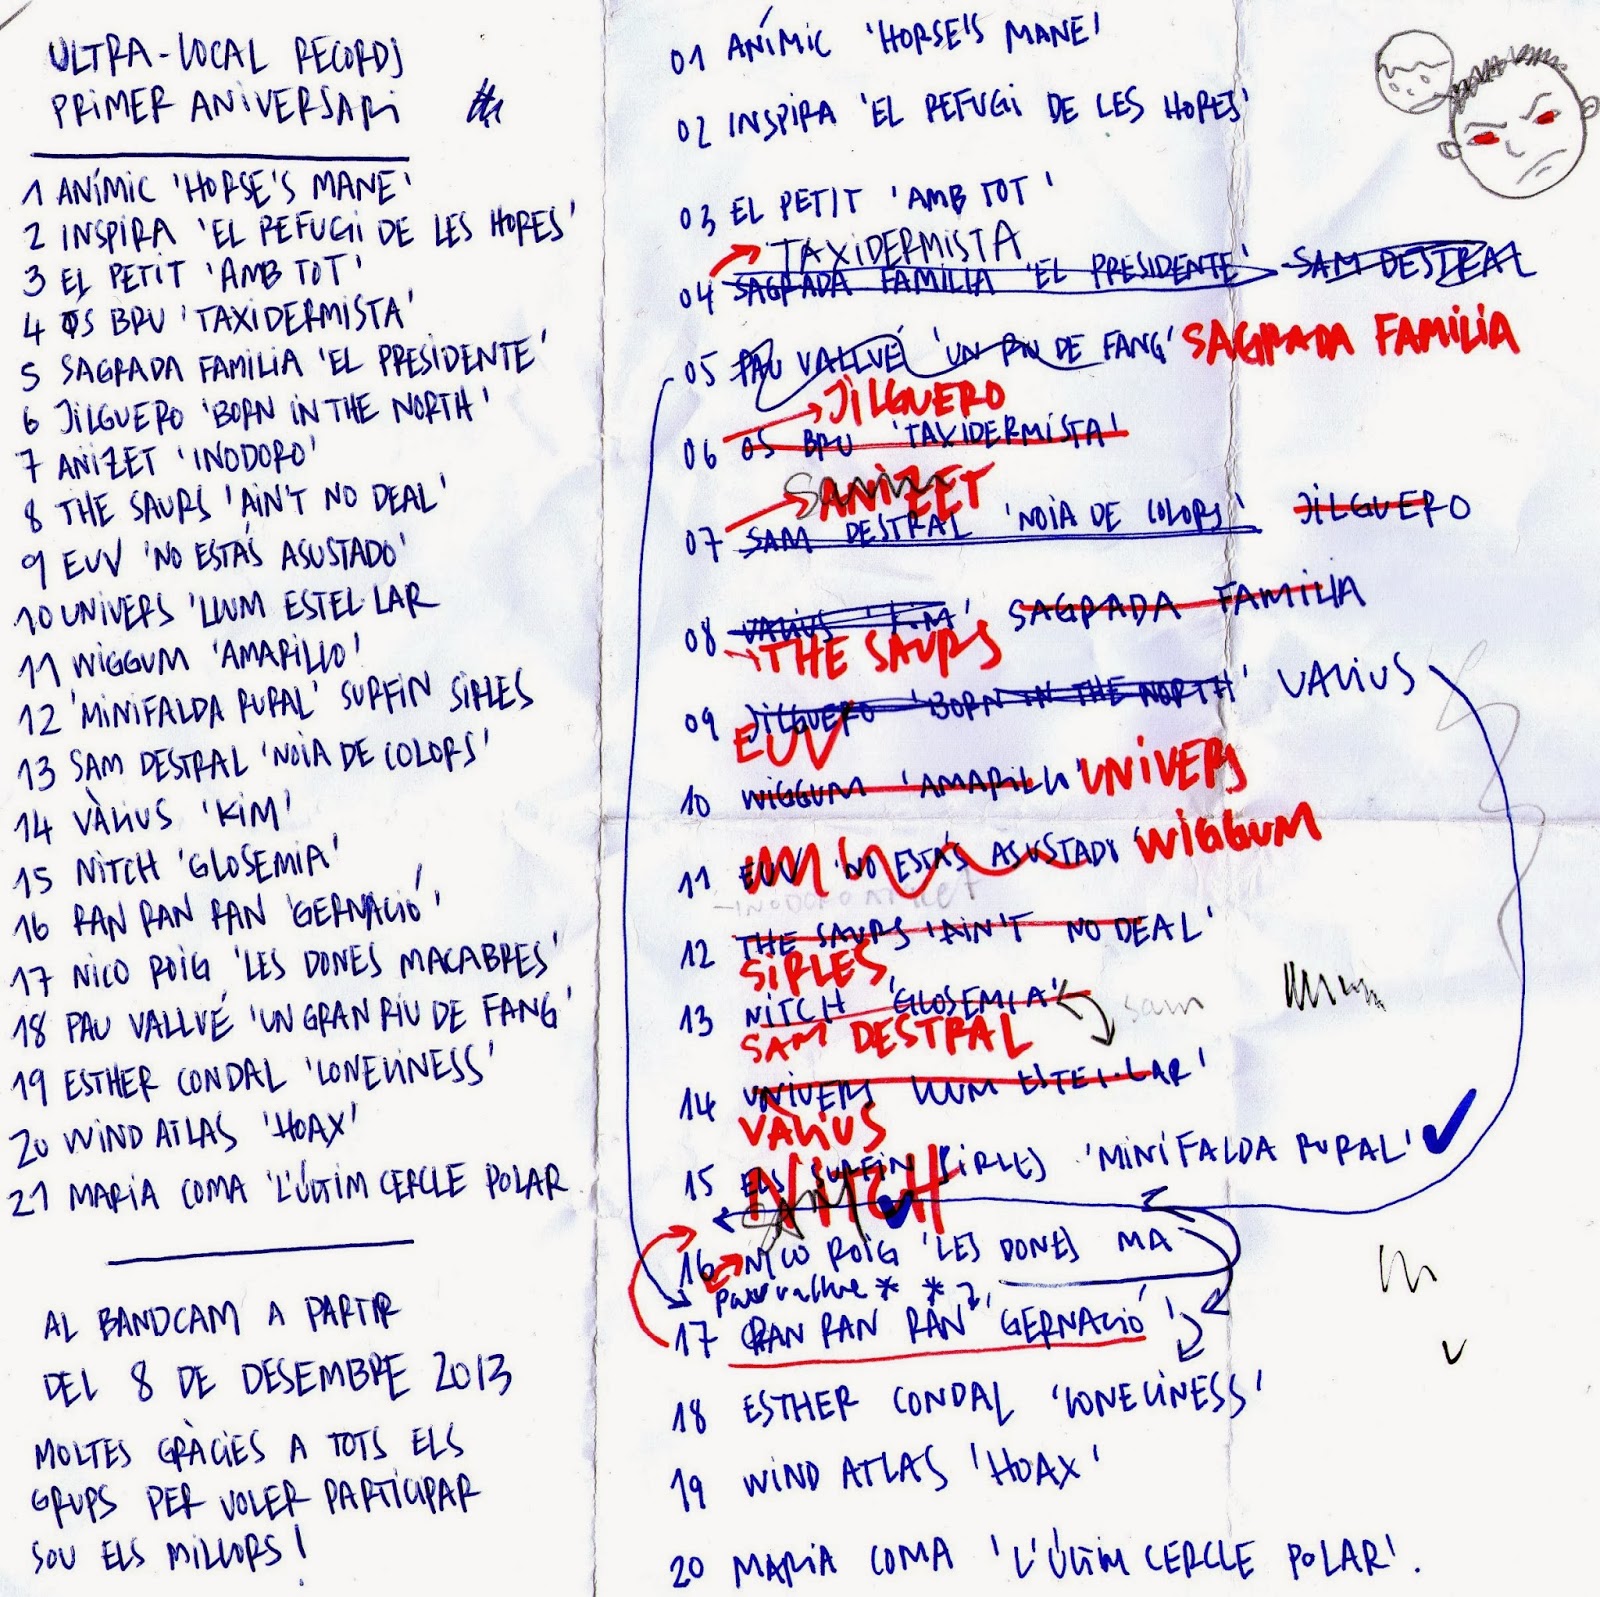 ULTRA-LOCAL RECORDS
PRIMER ANIVERSARI
1 ANÍMIC 'HORSE'S MANE'
2 INSPIRA 'EL REFUGI DE LES HORES'
3 EL PETIT 'AMB TOT'
4 OS BRU 'TAXIDERMISTA'
5 SAGRADA FAMILIA 'EL PRESIDENTE'
6 JILGUERO 'BORN IN THE NORTH'
7 ANIZET 'INODORO'
8 THE SAURS 'AIN'T NO DEAL'
9 EUV 'NO ESTÁS ASUSTADO'
10 UNIVERS 'LLUM ESTEL·LAR
11 WIGGUM 'AMARILLO'
12 'MINIFALDA RURAL' SURFIN SIRLES
13 SAM DESTRAL 'NOIA DE COLORS'
14 VÀLIUS 'KIM'
15 NITCH 'GLOSEMIA'
16 RAN RAN RAN 'GERNACIÓ'
17 NICO ROIG 'LES DONES MACABRES'
18 PAU VALLVÉ 'UN GRAN RIU DE FANG'
19 ESTHER CONDAL 'LONELINESS'
20 WIND ATLAS 'HOAX'
21 MARIA COMA 'L'ÚLTIM CERCLE POLAR
AL BANDCAM A PARTIR
DEL 8 DE DESEMBRE 2013
MOLTES GRÀCIES A TOTS ELS
GRUPS PER VOLER PARTICIPAR
SOU ELS MILLORS!
01 ANÍMIC 'HORSE'S MANE'
02 INSPIRA 'EL REFUGI DE LES HORES'
03 EL PETIT 'AMB TOT'
TAXIDERMISTA
04 SAGRADA FAMILIA 'EL PRESIDENTE' SAM DESTRAL
05 PAU VALLVÉ 'UN RIU DE FANG' SAGRADA FAMILIA
JILGUERO
06 OS BRU 'TAXIDERMISTA'
ANIZET
07 SAM DESTRAL 'NOIA DE COLORS' JILGUERO
08 VALIUS 'KIM' SAGRADA FAMILIA
THE SAURS
09 JILGUERO 'BORN IN THE NORTH' VALIUS
EUV
10 WIGGUM 'AMARILLO' UNIVERS
11 EUV 'NO ESTÁS ASUSTADO' WIGGUM
12 THE SAURS 'AIN'T NO DEAL'
SIRLES
13 NITCH 'GLOSEMIA' sam
SAM DESTRAL
14 UNIVERS LLUM ESTEL·LAR'
VALIUS
15 ELS SURFIN SIRLES 'MINIFALDA RURAL'
NITCH
SAM
16 NICO ROIG 'LES DONES MA
pau vallve * *
17 RAN RAN RAN 'GERNACIÓ'
18 ESTHER CONDAL 'LONELINESS'
19 WIND ATLAS 'HOAX'
20 MARIA COMA 'L'ÚLTIM CERCLE POLAR'.